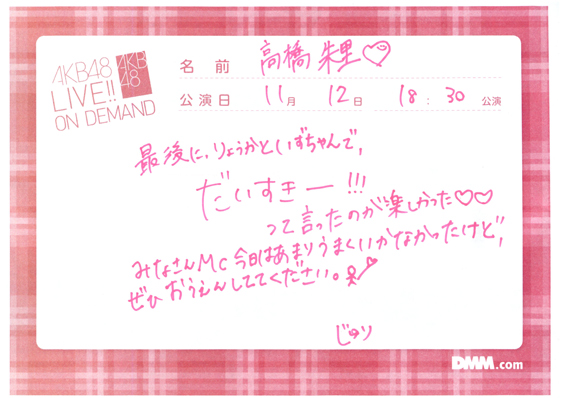 AKB48
LIVE!!
ON DEMAND
AKB
48
名前 高橋朱里♡
公演日 11月 12日 18:30 公演
最後に、りょうかといずちゃんで、
だいすきー!!!
って言ったのが楽しかった♡♡
みなさんMC今日はあまりうまくいかなかったけど、
ぜひおうえんしててください。
じゅり
DMM.com